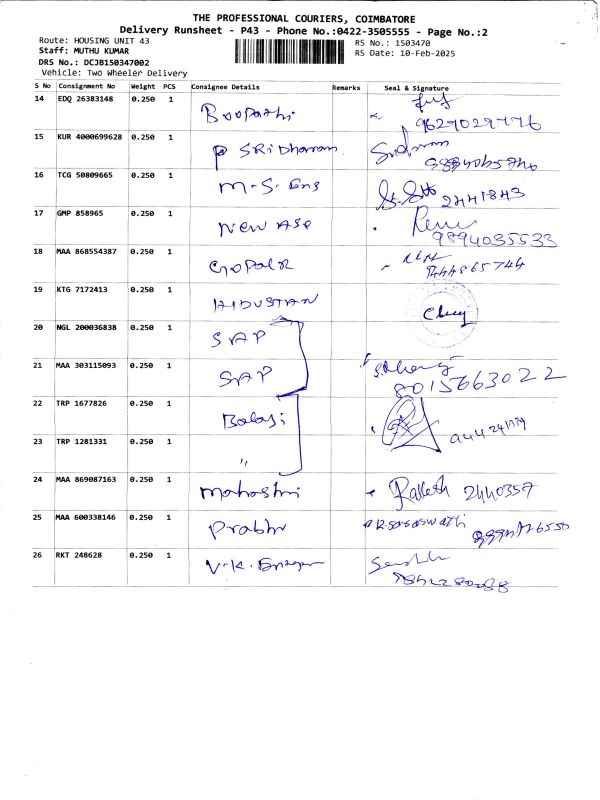 THE PROFESSIONAL COURIERS, COIMBATORE
Delivery Runsheet - P43 - Phone No.:0422-3505555 - Page No.:2
Route: HOUSING UNIT 43
RS No.: 1503470
Staff: MUTHU KUMAR
RS Date: 10-Feb-2025
DRS No.: DCJB150347002
Vehicle: Two Wheeler Delivery
S No Consignment No Weight PCS Consignee Details Remarks Seal & Signature
14 EDQ 26383148 0.250 1 Boopathi
9629029776
15 KUR 4000699628 0.250 1 P SRiDharan
16 TCG 50809665 0.250 1 M.S. Eng 2441843
17 GMP 858965 0.250 1 New ASP
9894035533
18 MAA 868554387 0.250 1 GOPal R
19 KTG 7172413 0.250 1 HINDUSTAN
20 NGL 200036838 0.250 1 SAP
21 MAA 303115093 0.250 1 SAP
8015663022
22 TRP 1677826 0.250 1 Balaji
23 TRP 1281331 0.250 1 "
24 MAA 869087163 0.250 1 Mahashri Rakesh 2440357
25 MAA 600338146 0.250 1 Prabhu R. Saraswathi
26 RKT 248628 0.250 1 V.K.